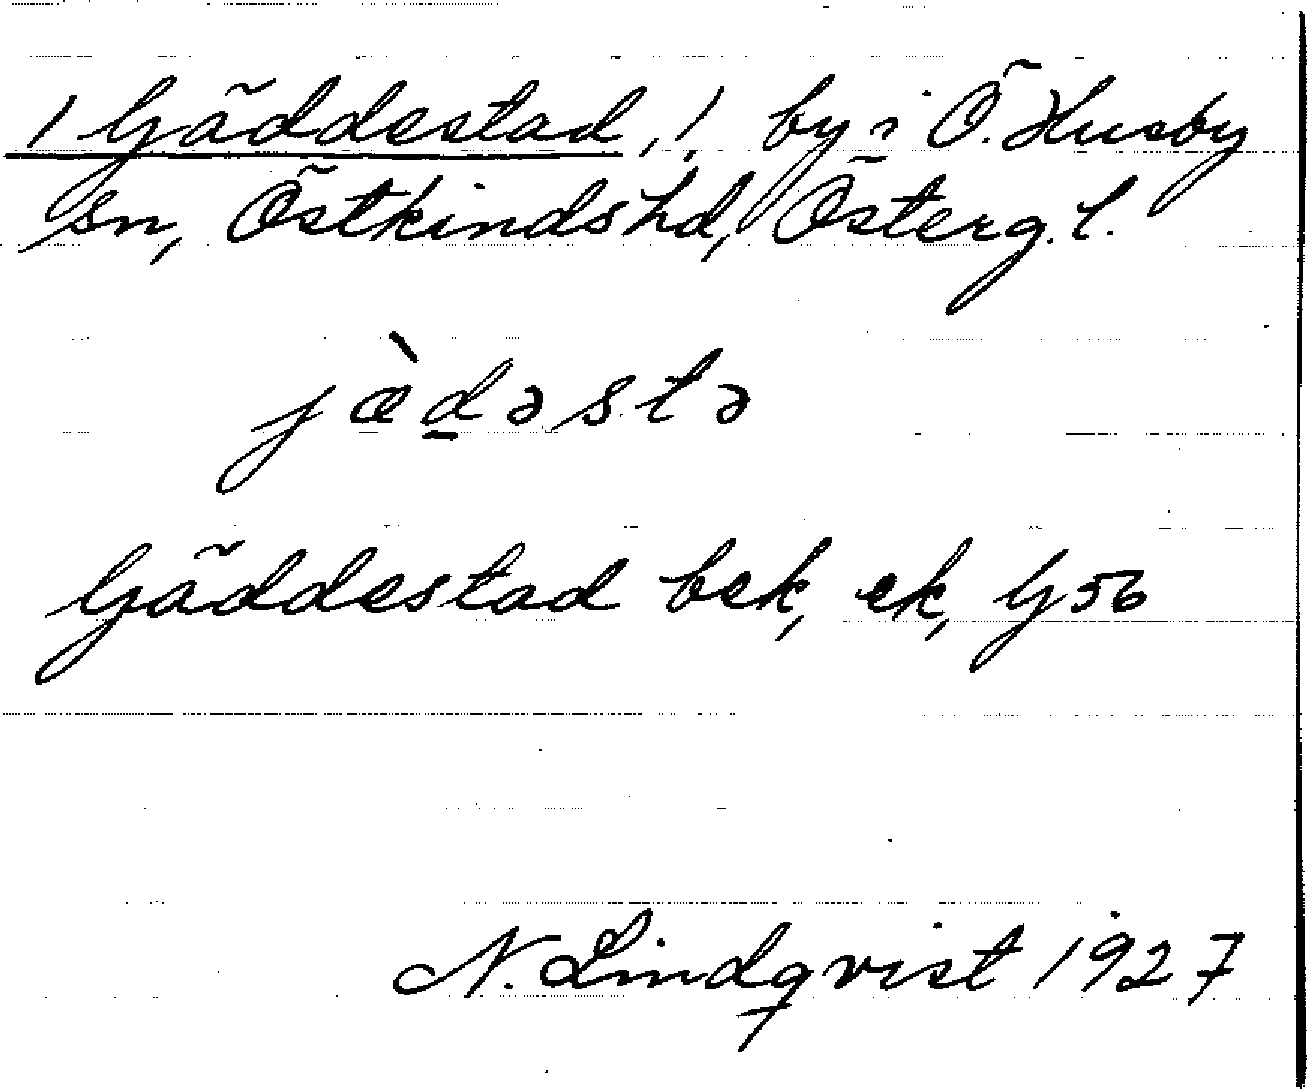 / Gäddestad, /, by i Ö. Husby
sn, Östkinds hd, Österg. l.
jæ̀d̲əstə
Gäddestad bek, ek, G 56
N. Lindqvist 1927